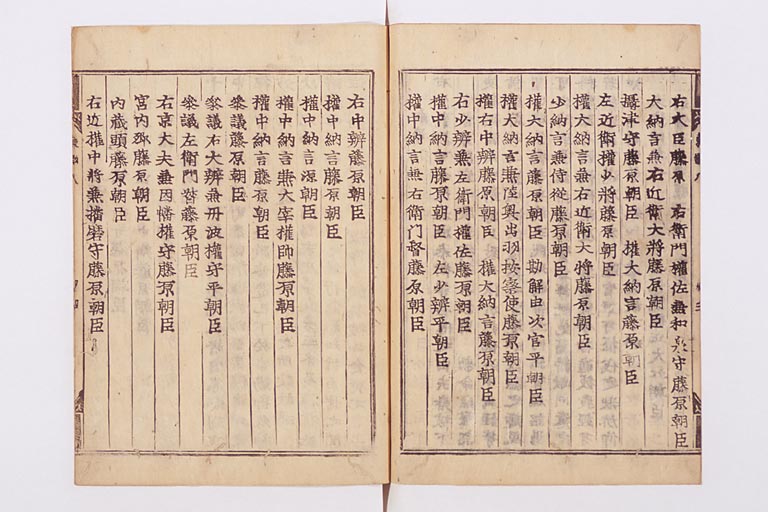 右大臣藤原 右衛門權佐兼和泉守藤原朝臣
大納言兼右近衛大將藤原朝臣
攝津守藤原朝臣 權大納言藤原朝臣
左近衛權少將藤原朝臣
權大納言兼右近衛大將藤原朝臣
少納言兼侍從藤原朝臣
權大納言藤原朝臣 勘解由次官平朝臣
權大納言兼陸奥出羽按察使藤原朝臣
權右中辨藤原朝臣 權大納言藤原朝臣
右少辨兼左衛門權佐藤原朝臣
權中納言藤原朝臣 左少辨平朝臣
權中納言兼右衛門督藤原朝臣
右中辨藤原朝臣
權中納言藤原朝臣
權中納言源朝臣
權中納言兼大宰權帥藤原朝臣
權中納言藤原朝臣
參議藤原朝臣
參議右大辨兼丹波權守平朝臣
參議左衛門督藤原朝臣
右京大夫兼因幡權守藤原朝臣
宮内卿藤原朝臣
内藏頭藤原朝臣
右近權中將兼播磨守藤原朝臣